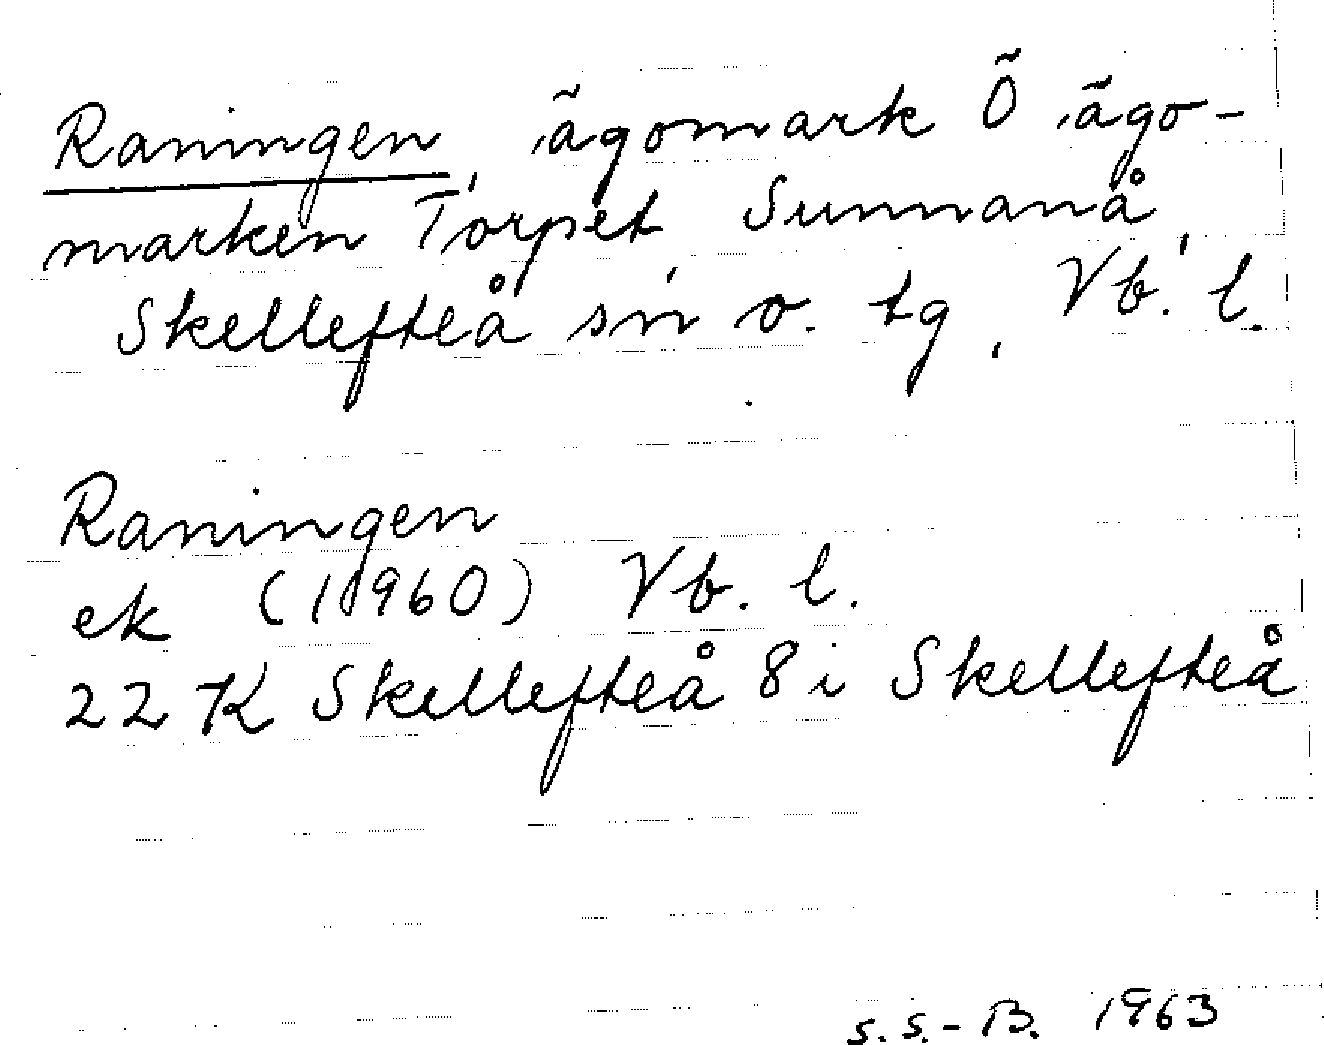 Raningen, ägomark Ö ägo-
marken Torpet, Sunnanå,
Skellefteå sn o. tg, Vb. l.
Raningen
ek (1960) Vb. l.
22 K Skellefteå 8 i Skellefteå
S.S.-B. 1963